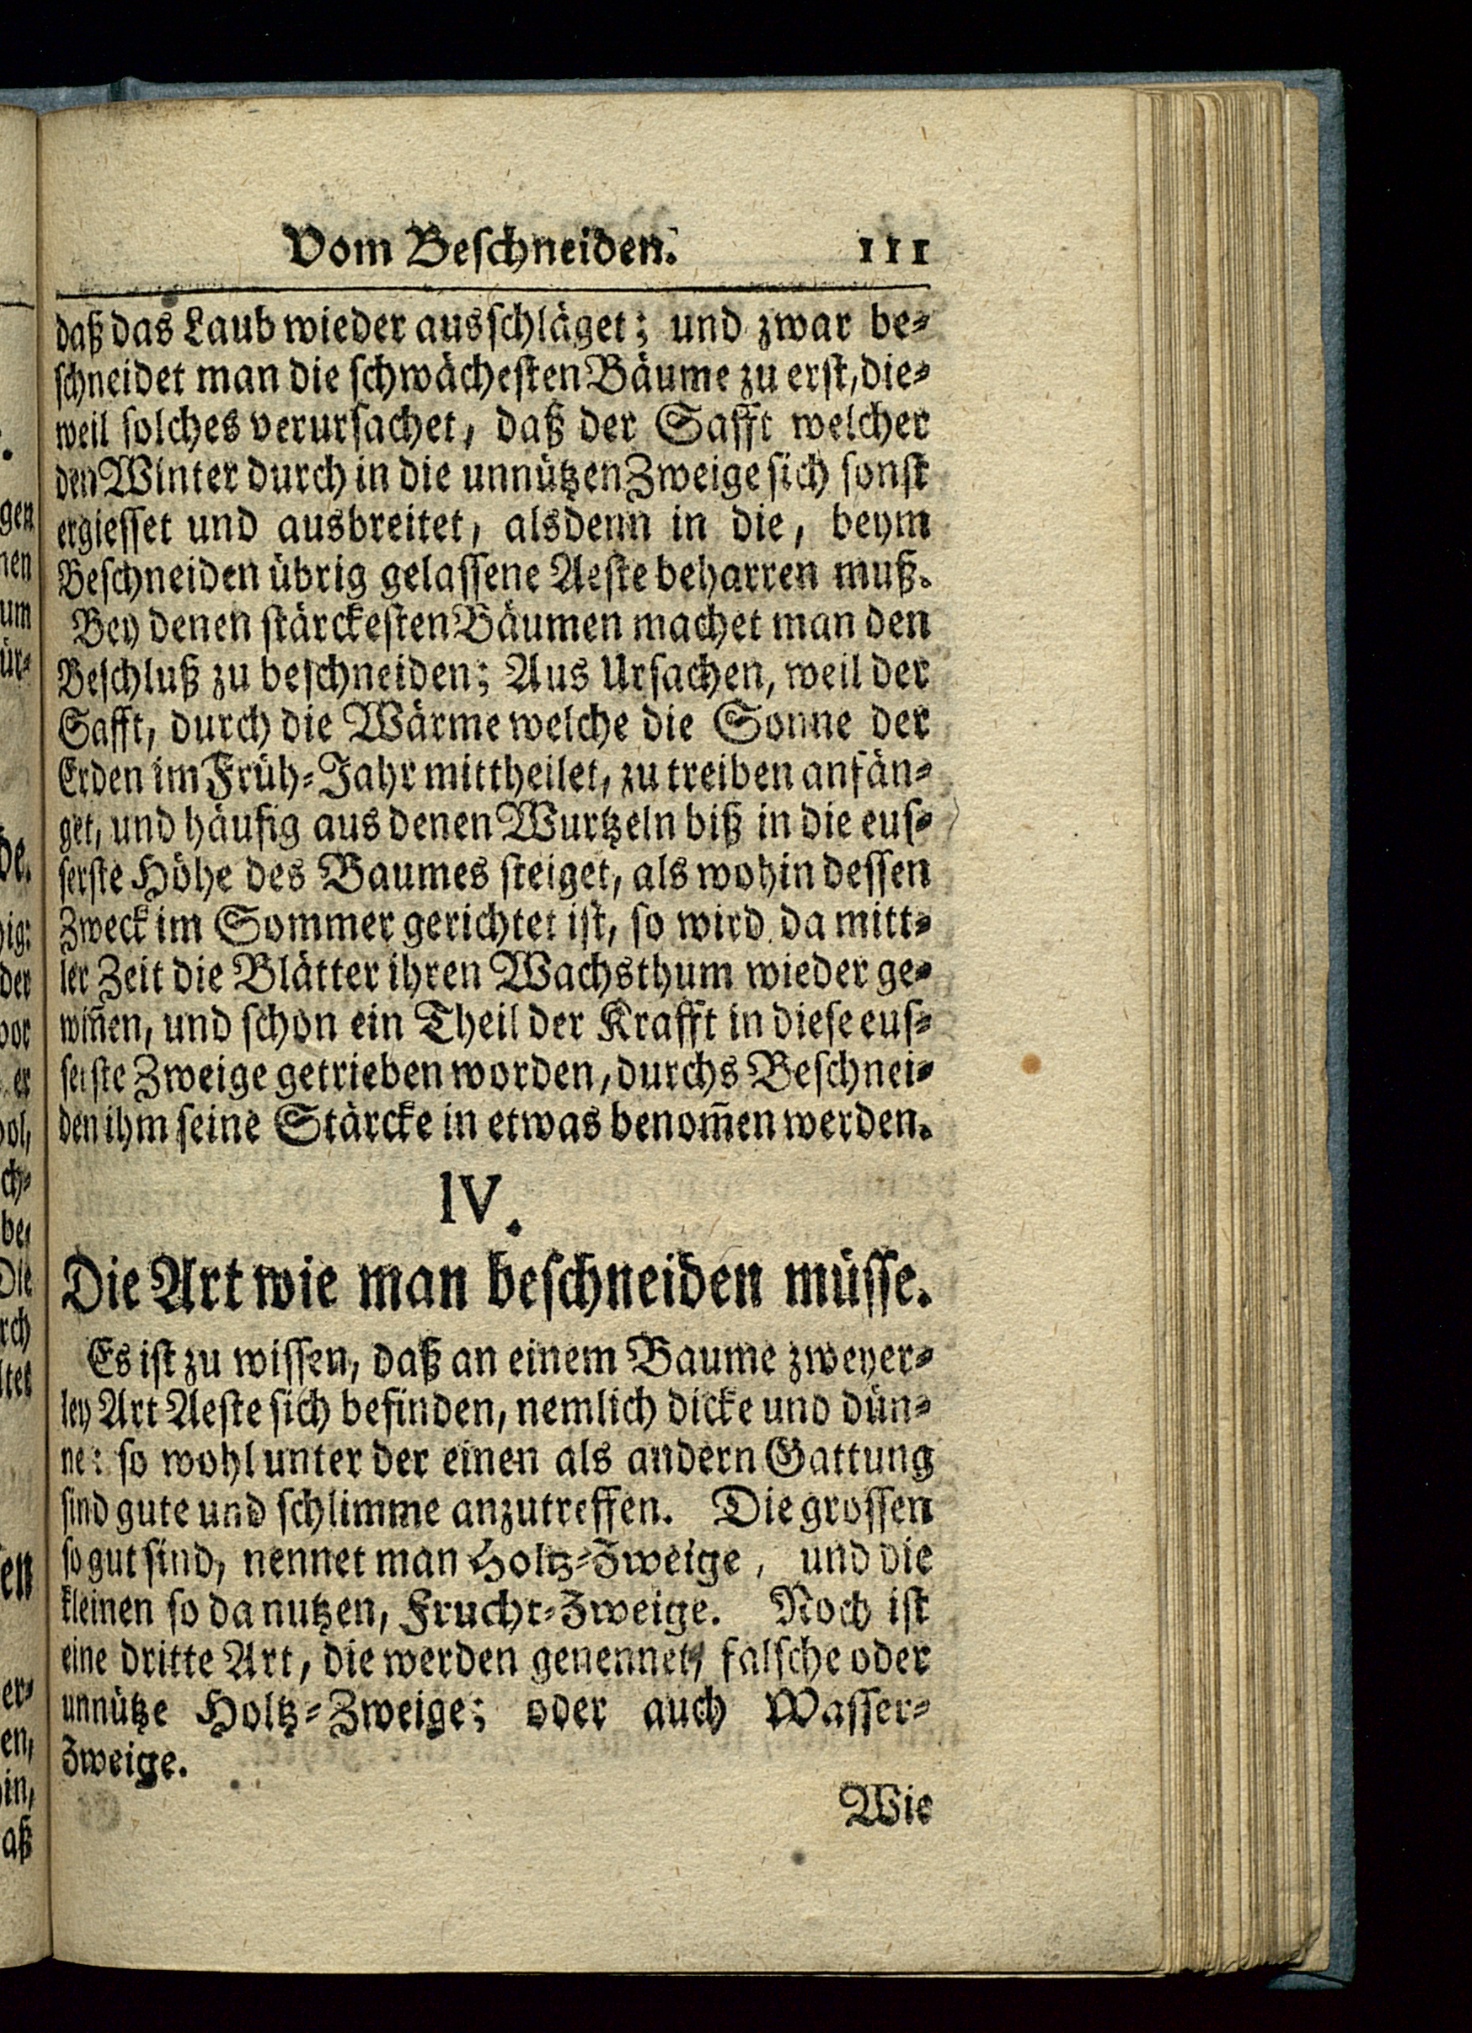 Vom Beschneiden. 111
daß das Laub wieder ausschläget; und zwar be-
schneidet man die schwächesten Bäume zu erst, die-
weil solches verursachet, daß der Safft welcher
den Winter durch in die unnützen Zweige sich sonst
ergiesset und ausbreitet, alsdenn in die, beym
Beschneiden übrig gelassene Aeste beharren muß.
Bey denen stärckesten Bäumen machet man den
Beschluß zu beschneiden; Aus Ursachen, weil der
Safft, durch die Wärme welche die Sonne der
Erden im Früh-Jahr mittheilet, zu treiben anfän-
get, und häufig aus denen Wurtzeln biß in die eus-
serste Höhe des Baumes steiget, als wohin dessen
Zweck im Sommer gerichtet ist, so wird da mitt-
ler Zeit die Blätter ihren Wachsthum wieder ge-
wiñen, und schon ein Theil der Krafft in diese eus-
serste Zweige getrieben worden, durchs Beschnei-
den ihm seine Stärcke in etwas benom̃en werden.
IV.
Die Art wie man beschneiden müsse.
Es ist zu wissen, daß an einem Baume zweyer-
ley Art Aeste sich befinden, nemlich dicke und dün-
ne: so wohl unter der einen als andern Gattung
sind gute und schlimme anzutreffen. Die grossen
so gut sind, nennet man Holtz-Zweige, und die
kleinen so da nutzen, Frucht-Zweige. Noch ist
eine dritte Art, die werden genennet, falsche oder
unnütze Holtz-Zweige; oder auch Wasser-
Zweige.
Wie